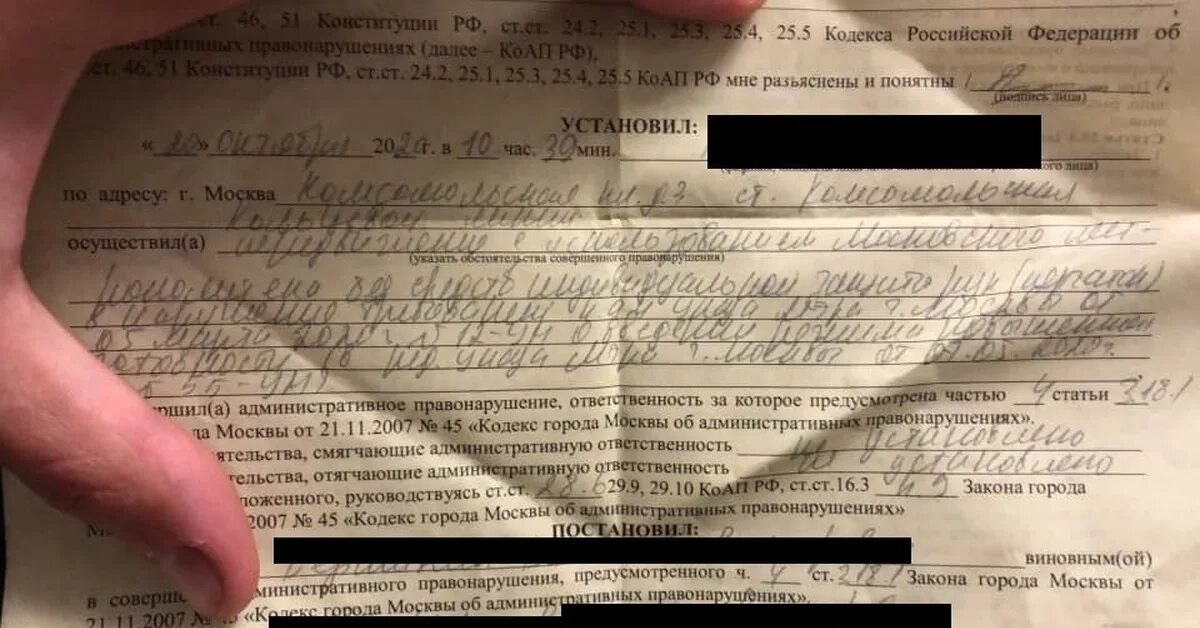 ст. 46, 51 Конституции РФ, ст.ст. 24.2, 25.1, 25.3, 25.4, 25.5 Кодекса Российской Федерации об
административных правонарушениях (далее – КоАП РФ),
ст. 46, 51 Конституции РФ, ст.ст. 24.2, 25.1, 25.3, 25.4, 25.5 КоАП РФ мне разъяснены и понятны /
(подпись лица)
УСТАНОВИЛ:
лица)
«20» октября 2020г. в 10 час. 30 мин.
по адресу: г. Москва Комсомольская пл. д3 ст. Комсомольская
Кольцевой линии
осуществил(а) передвижение с использованием Московского мет-
(указать обстоятельства совершенного правонарушения)
рополитена без средств индивидуальной защиты рук (перчаток)
в нарушение требований п. указа Мэра г. Москвы от
05 марта 2020 г. № 12-УМ о введении режима повышенной
готовности (в ред. указа Мэра г. Москвы от 07.05.2020г.
№ 55-УМ)
ршил(а) административное правонарушение, ответственность за которое предусмотрена частью 4 статьи 3.18.1
да Москвы от 21.11.2007 № 45 «Кодекс города Москвы об административных правонарушениях».
ятельства, смягчающие административную ответственность не установлено
тельства, отягчающие административную ответственность не установлено
ложенного, руководствуясь ст.ст. 28.6 29.9, 29.10 КоАП РФ, ст.ст.16.3 Закона города
2007 № 45 «Кодекс города Москвы об административных правонарушениях»
ПОСТАНОВИЛ:
виновным(ой)
в соверше министративного правонарушения, предусмотренного ч. 4 ст. 3.18.1 Закона города Москвы от
21.11.2007 № 45 «Кодекс города Москвы об административных правонарушениях»,